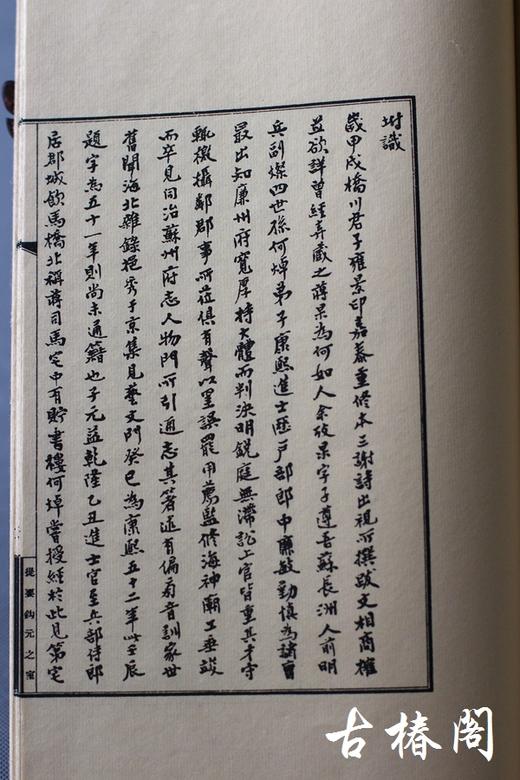 坿識
歲甲戌橋川君子雍景印嘉泰重修本三謝詩出視所撰跋文相商榷
並欲詳曾經弆藏之蔣杲為何如人余攷杲字子遵吾蘇長洲人前明
兵副燦四世孫何焯弟子康熙進士歷戶部郎中廉敏勤慎為諸曹
最出知廉州府寬厚持大體而判決明銳庭無滯訟上官皆重其才守
輒檄攝鄰郡事所莅俱有聲以罣誤罷甲薦監修海神廟工垂竣
而卒見同治蘇州府志人物門所引通志其著述有偏旁音訓家世
舊聞海北雜錄挹秀于京集見藝文門癸巳為康熙五十二年此壬辰
題字為五十一年則尚未通籍也子元益乾隆乙丑進士官至兵部侍郎
居郡城飲馬橋北稱蔣司馬宅中有貯書樓何焯嘗授經於此見第宅
提要鉤元之室
古椿阁